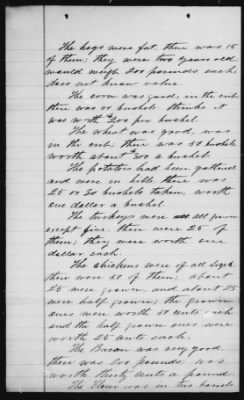 The hogs were fat, there was 15
of them; they were two years old
would weigh 200 pounds each
does not know value
The corn was good, in the crib
there was 50 bushels. thinks it
was worth $200 per bushel
The wheat was good, was
in the crib. there was 50 bushels
worth about $200 a bushel
The potatoes had been gathered
and were in hills, there were
25 or 30 bushels taken. worth
one dollar a bushel
The turkeys were all grown
except five. there were 25 of
them; they were worth one
dollar each.
The chickens were of all sizes
there were 50 of them; about
25 were grown, and about 25
were half grown; the grown
ones were worth 50 cents each
and the half grown ones were
worth 25 cents each.
The Bacon was very good.
there was 200 pounds; was
worth thirty cents a pound
The flour was in two barrels